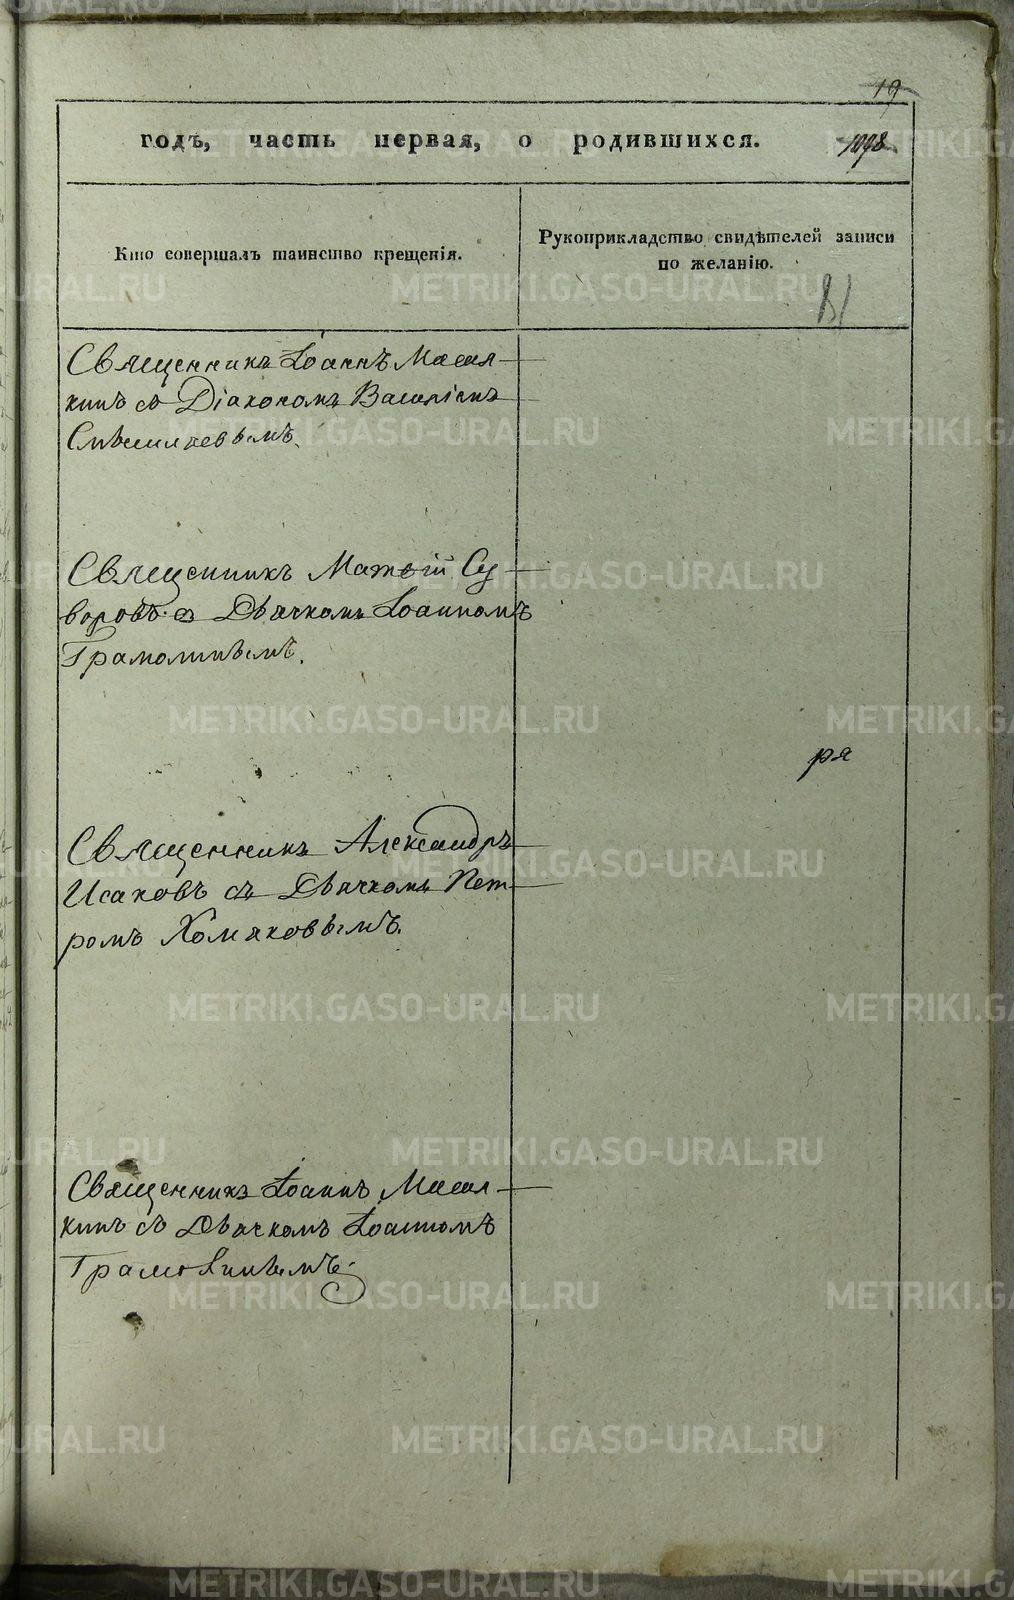 19
годъ, часть первая, о родившихся.
1098
Кто совершалъ таинство крещенія.
Рукоприкладство свидѣтелей записи
по желанію.
Священникъ Іоаннъ Масал-
кинъ съ Діакономъ Василіемъ
Священникъ Матѳій Су-
воровъ съ Дьячкомъ Іоанномъ
Грамолинымъ.
ря
Священникъ Александръ
Исаковъ съ Дьячкомъ Пет-
ромъ Хомяковымъ.
Священникъ Іоаннъ Масал-
кинъ съ Дьячкомъ Іоанномъ
Грамолинымъ.
METRIKI.GASO-URAL.RU